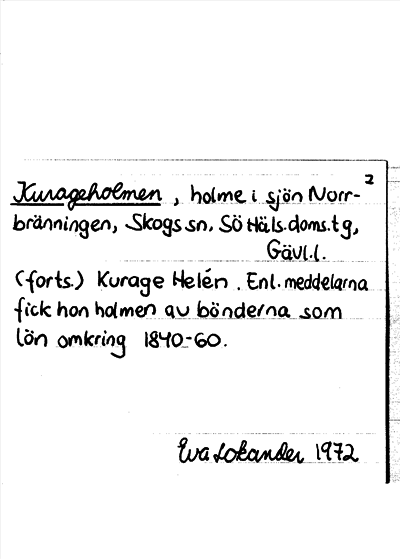 2
Kurageholmen, holme i sjön Norr-
bränningen, Skogs sn, Sö Häls. doms. tg,
Gävl. l.
(forts.) Kurage Helén. Enl. meddelarna
fick hon holmen av bönderna som
lön omkring 1840-60.
Eva Lokander 1972